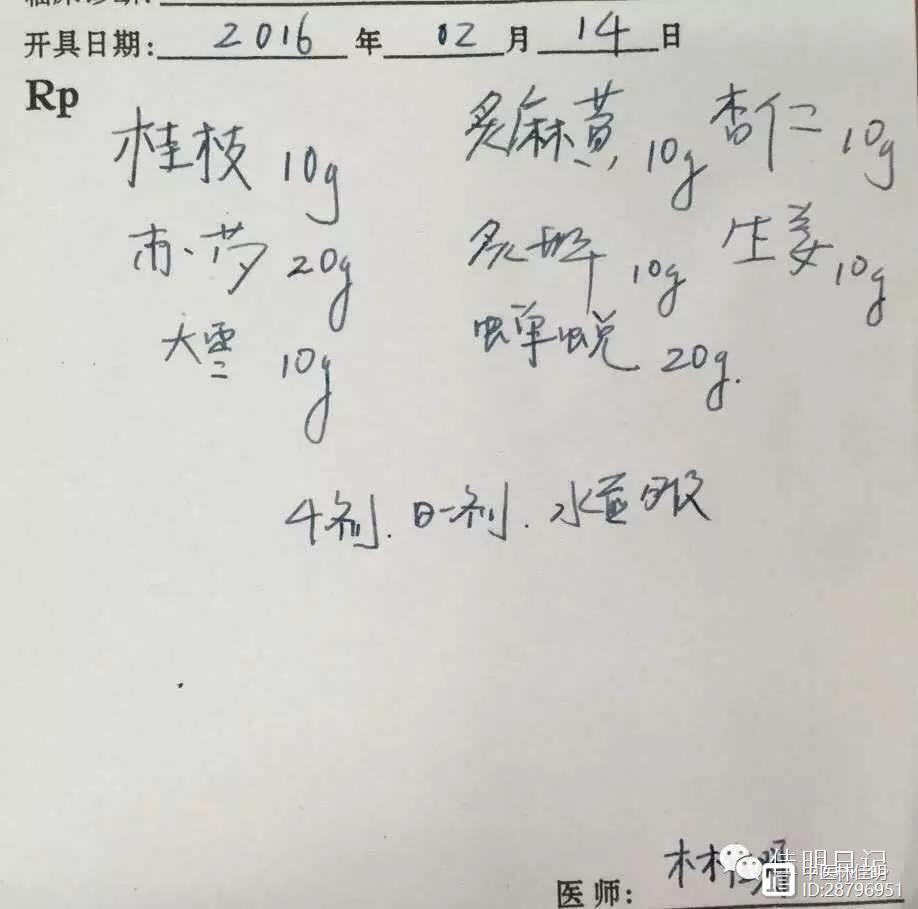 开具日期: 2016 年 02 月 14 日
Rp
桂枝 10g 炙麻黄 10g 杏仁 10g
赤芍 20g 炙甘草 10g 生姜 10g
大枣 10g 蝉蜕 20g.
4剂. 日一剂. 水煎服
医师: 林佳明
佳明日记
中医林佳明
ID:28796951